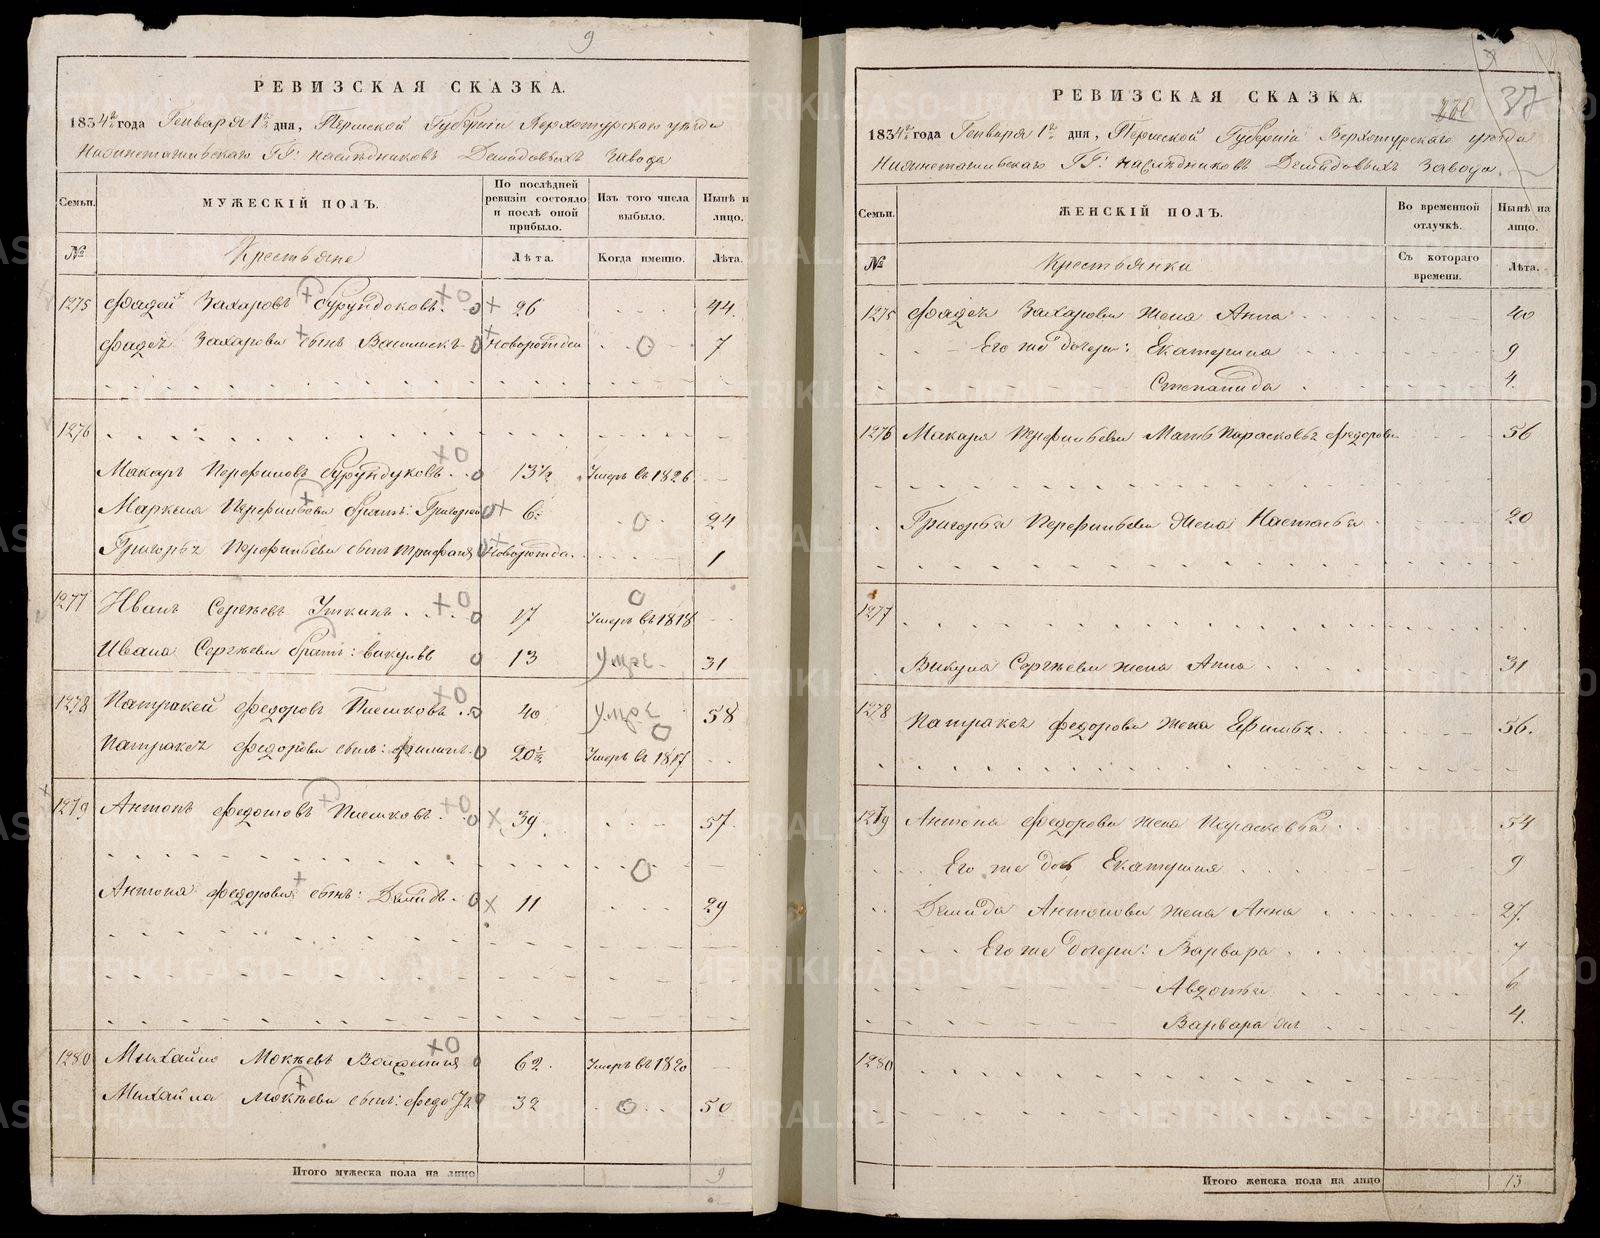 9
РЕВИЗСКАЯ СКАЗКА.
1834го года Генваря 1го дня, Пермской Губернiи Верхотурскаго уѣзда
Нижнетагильскаго ГГ: наслѣдниковъ Демидовыхъ завода
Семьи. МУЖЕСКIЙ ПОЛЪ. По послѣдней ревизiи состояло и послѣ оной прибыло. Изъ того числа выбыло. Нынѣ н лицо.
№ Крестьяне Лѣта. Когда именно. Лѣта.
1275 Фадей Захаровъ Бурундоковъ. 26 44.
Фадея Захарова сынъ Василей новорожден 7
1276
Макаръ Перфиловъ Бурундуковъ. 13½ Умеръ въ 1826
Маркела Перфильева братъ: Григорей 6. 24
Григорья Перфильева сынъ Трифанъ Новорожде. 1
1277 Иванъ Сергѣевъ Уткинъ. 17 Умеръ въ 1818
Ивана Сергѣева братъ: Викулъ 13 умре. 31
1278 Патракей Федоровъ Плешковъ. 40 умре 58
Патракея Федорова сынъ: Филипъ. 20½ Умеръ въ 1817
1279 Антонъ Федотовъ Плешковъ. 39. 57.
Антона Федорова сынъ: Демидъ. 11 29
1280 Михайло Мокѣевъ 62. Умеръ въ 1820
Михайла Мокѣева сынъ: Федо 32 50
Итого мужеска пола на лицо 9
37
РЕВИЗСКАЯ СКАЗКА.
1834го года Генваря 1го дня, Пермской Губернiи Верхотурскаго уѣзда
Нижнетагильскаго ГГ: наслѣдниковъ Демидовыхъ завода.
Семьи. ЖЕНСКIЙ ПОЛЪ. Во временной отлучкѣ. Нынѣ на лицо.
№ Крестьянки Съ котораго времени. Лѣта.
1275 Фадея Захарова жена Анна 40
Его же дочери: Екатерина 9
Степанида 4.
1276 Макара Перфильева Мать Парасковья Федорова 56
Григорья Перфильева жена Настасья 20
1277
Викула Сергѣева жена Анна 31
1278 Патракея Федорова жена Ефимья. 56.
1279 Антона Федорова жена Парасковья 54
Его же дочь Екатерина 9
Демида Антонова жена Анна 27.
Его же дочери: Варвара 7
Авдотья 6
Варвара 4.
1280
Итого женска пола на лицо 13
METRIKI.GASO-URAL.RU